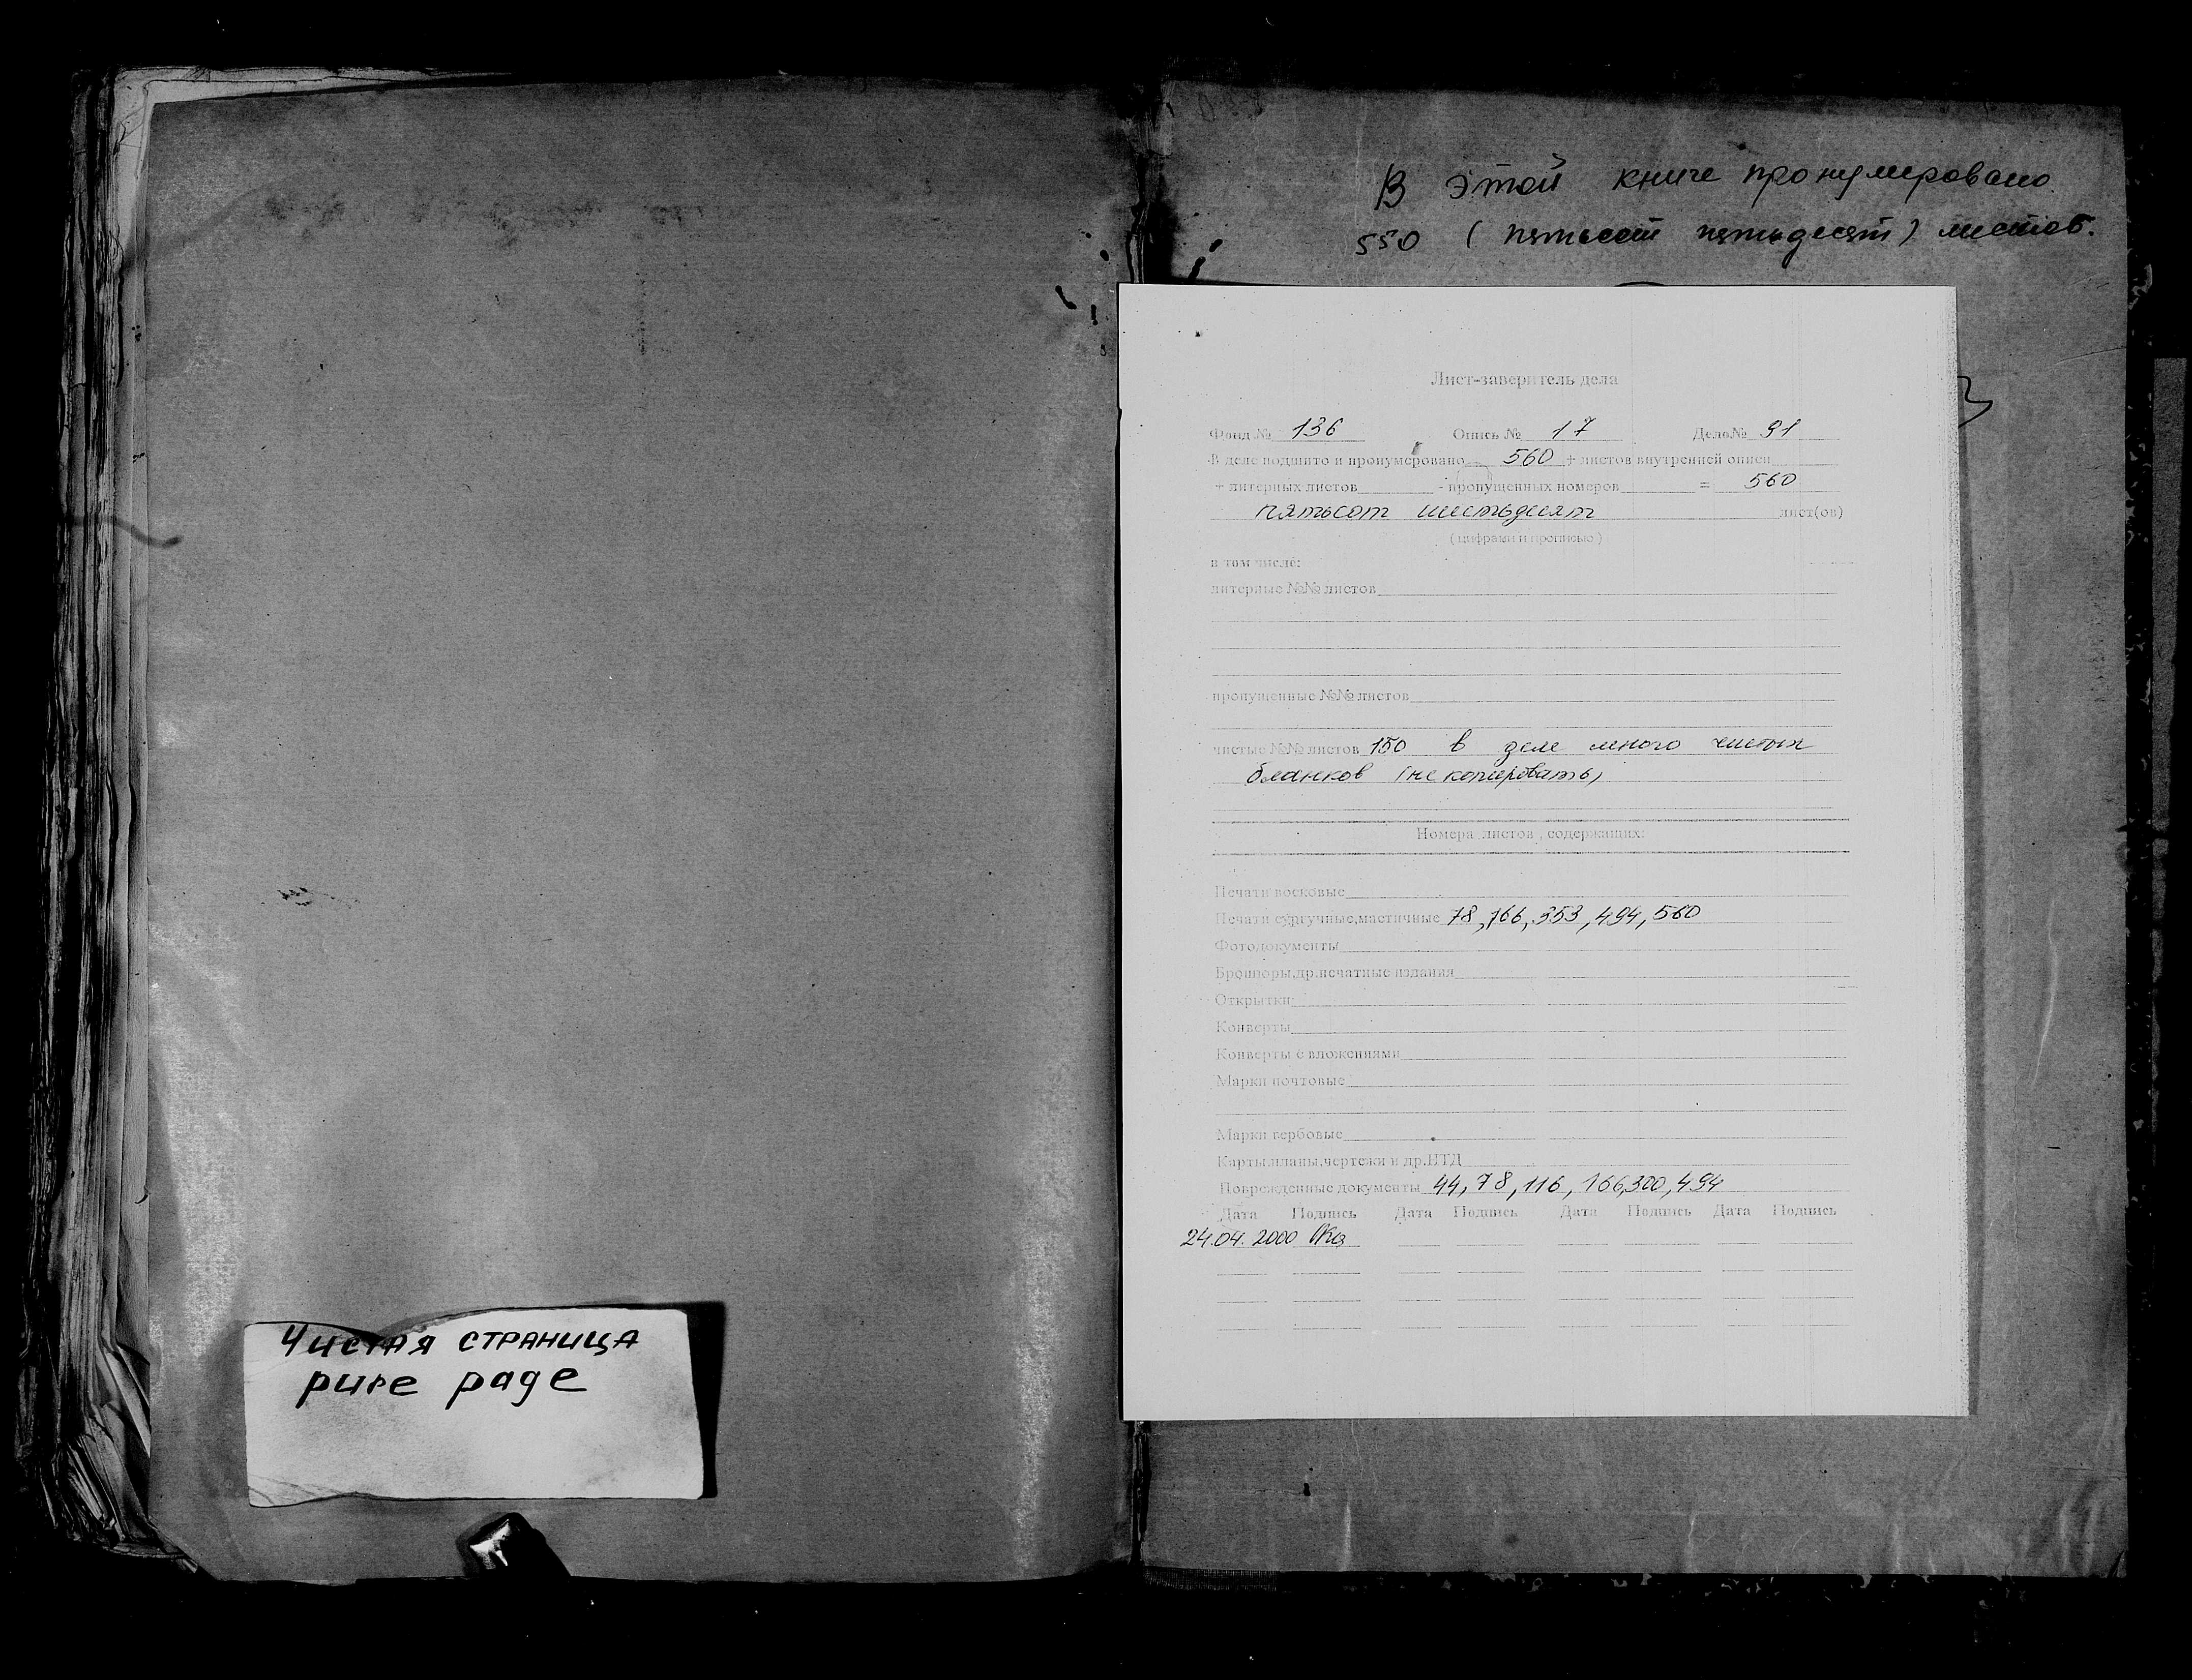 Чистая страница
pure page
В этой книге пронумеровано
550 (пятьсот пятьдесят) листов.
Лист-заверитель дела
Фонд № 136 Опись № 17 Дело№ 91
В деле подшито и пронумеровано 560 + листов внутренней описи
+ литерных листов - пропущенных номеров = 560
пятьсот шестьдесят лист(ов)
(цифрами и прописью)
в том числе:
литерные №№ листов
пропущенные №№ листов
чистые №№ листов 150 в деле много чистых
бланков (не копировать)
Номера листов, содержащих:
Печати восковые
Печати сургучные,мастичные 78, 166, 353, 494, 560
Фотодокументы
Брошюры,др.печатные издания
Открытки
Конверты
Конверты с вложениями
Марки почтовые
Марки гербовые
Карты,планы,чертежи и др.НТД
Поврежденные документы 44, 78, 116, 166,300, 494
Дата Подпись Дата Подпись Дата Подпись Дата Подпись
24.04. 2000